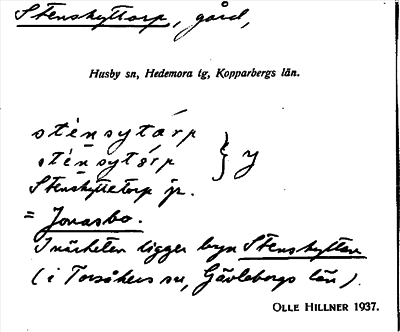 Stenshyttorp, gård,
Husby sn, Hedemora tg, Kopparbergs län.
sténsytárp
sténsytárp } y
Stenshyttetorp jr.
= Jonasbo.
I närheten ligger byn Stenshyttan
(i Torsåkers sn, Gävleborgs län).
OLLE HILLNER 1937.